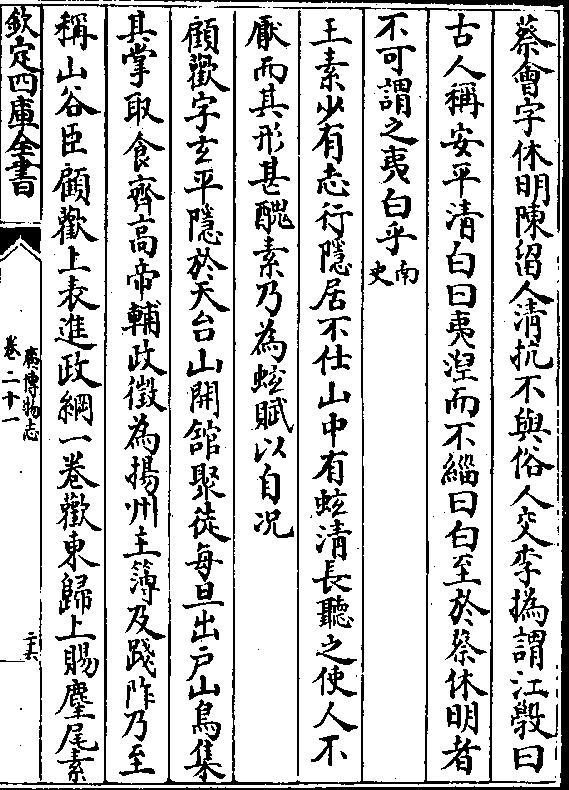 蔡會字休明陳留人清抗不與俗人交李撝謂江斅曰
古人稱安平清白曰夷涅而不緇曰白至於蔡休明者
不可謂之夷白乎南史
王素少有志行隱居不仕山中有蚿清長聽之使人不
厭而其形甚醜素乃為蚿賦以自况
顧歡字玄平隱於天台山開舘聚徒每旦出戶山鳥集
其掌取食齊高帝輔政徵為揚州主簿及踐阼乃至
稱山谷臣顧歡上表進政綱一卷歡東歸上賜麈尾素
欽定四庫全書
廣博物志
卷二十一
二十六